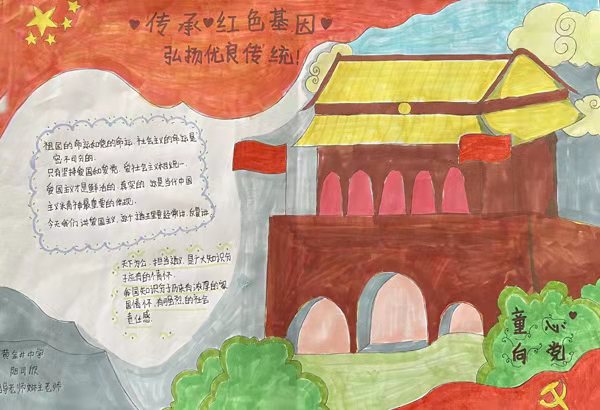 传承红色基因
弘扬优良传统!
祖国的命运和党的命运、社会主义的命运是
密不可分的。
只有坚持爱国和爱党、爱社会主义相统一,
爱国主义才是鲜活的、真实的,这是当代中国
主义精神最重要的体现。
今天我们讲爱国主义,这个道理要经常讲、反复讲
天下为公、担当道义,是广大知识分
子应有的情怀。
我国知识分子历来有浓厚的家
国情怀,有强烈的社会
责任感
童心
向党
黄金井中学
老师